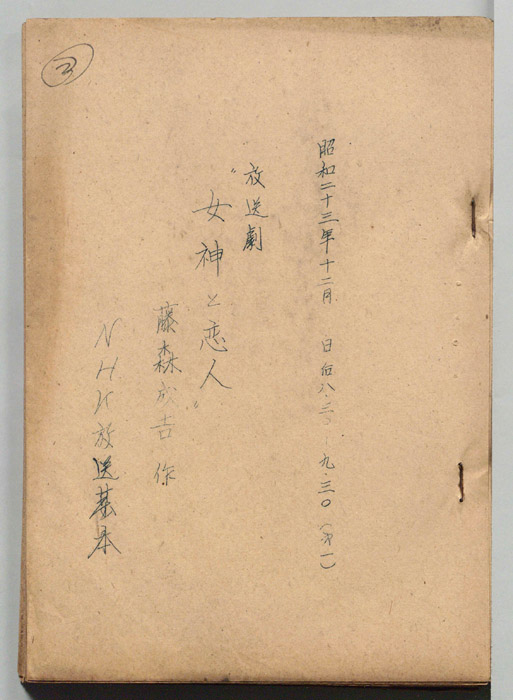 昭和二十三年十二月　日后八・三〇―九・三〇（才一）
放送劇
“女神と恋人”
藤森成吉 作
NHK放送基本